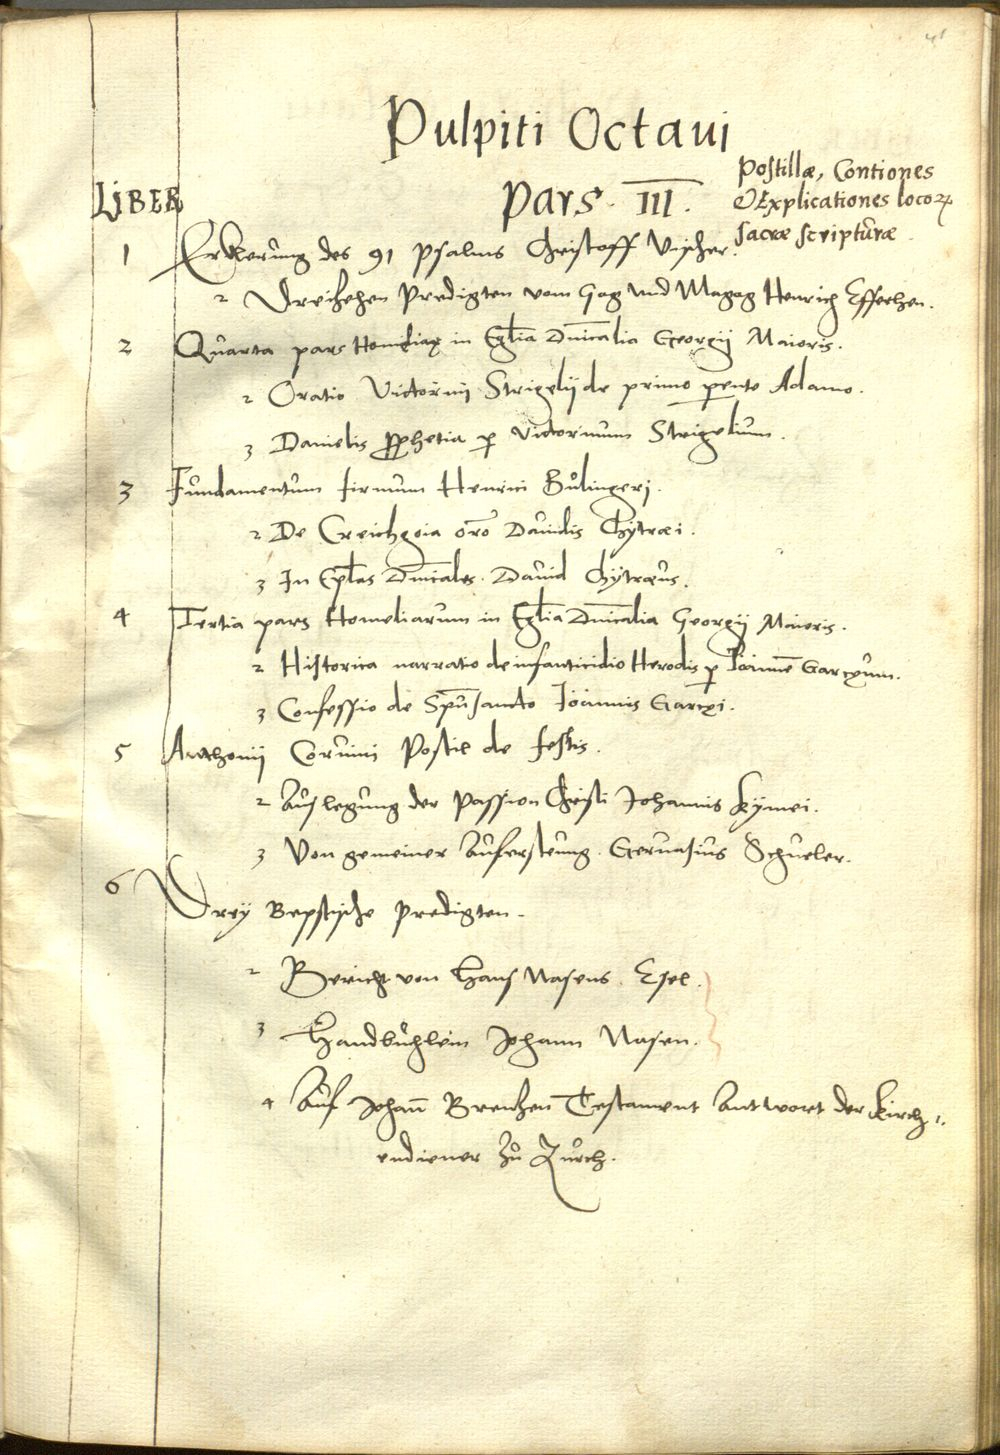 41
Pulpiti Octaui
LIBER
Pars III.
Postillæ, Contiones
& Explicationes locoꝝ
sacræ scripturæ
1 Erklerung des 91 Psalms Christoff Vischer.
2 Dreizehen Predigten vom Gog und Magog Henrich Efferhen.
2 Quarta pars Homeliaꝝ in Eglia Dnicalia Georgij Maioris.
2 Oratio Victorini Strigelij de primo pente Adamo.
3 Danielis Prophetia p Victorinum Strigelium.
3 Fundamentum firmum Henrici Bulingeri.
2 De Creichgoia oro Dauidis Chytræi.
3 In Eplas Dnicales. Dauid Chytræus.
4 Tertia pars Homeliarum in Eglia Dnicalia Georgij Maioris.
2 Historica narratio de infanticidio Herodis p Ioannē Garcæum.
3 Confessio de Spū sancto Ioannis Garcæi.
5 Anthonij Coruini Postil de festis.
2 Auslegung der Passion Christi Johannis Kymei.
3 Von gemeiner Aufersteung. Geruasius Schueler.
6 Drey Bepstische Predigten.
2 Bericht von Hans Nasens Esel.
3 Handbuchlein Johann Nasen.
4 Auf Johañ Brentzen Testament Antwort der Kirch-
endiener zu Zurch.